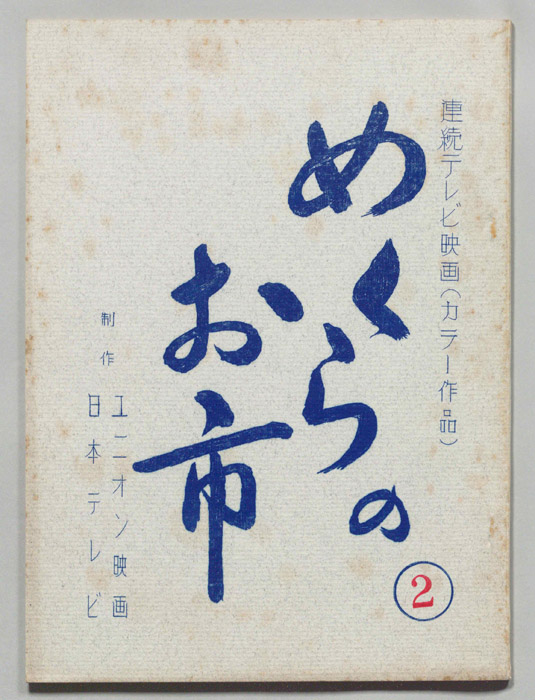 連続テレビ映画(カラー作品)
めくらの
お市
②
制作
ユニオン映画
日本テレビ